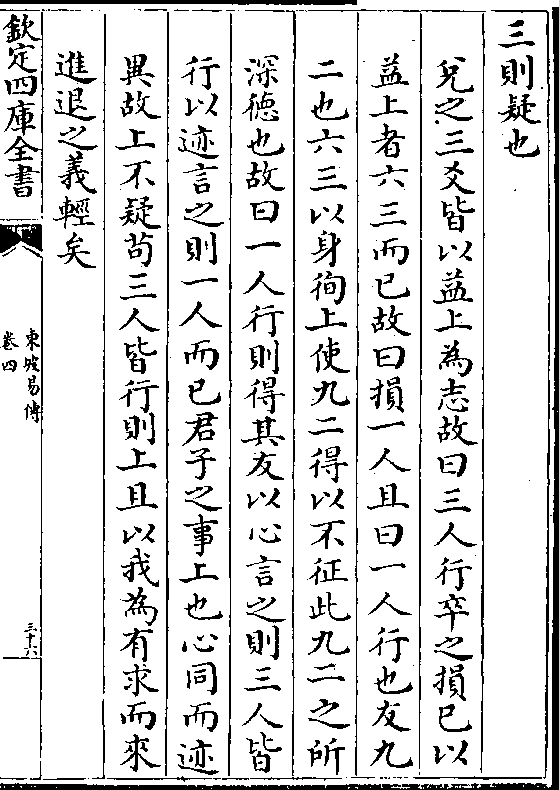 三則疑也
兌之三爻皆以益上為志故曰三人行卒之損已以
益上者六三而已故曰損一人且曰一人行也友九
二也六三以身徇上使九二得以不征此九二之所
深德也故曰一人行則得其友以心言之則三人皆
行以迹言之則一人而已君子之事上也心同而迹
異故上不疑苟三人皆行則上且以我為有求而來
進退之義輕矣
欽定四庫全書
東坡易傳
卷四
三十六